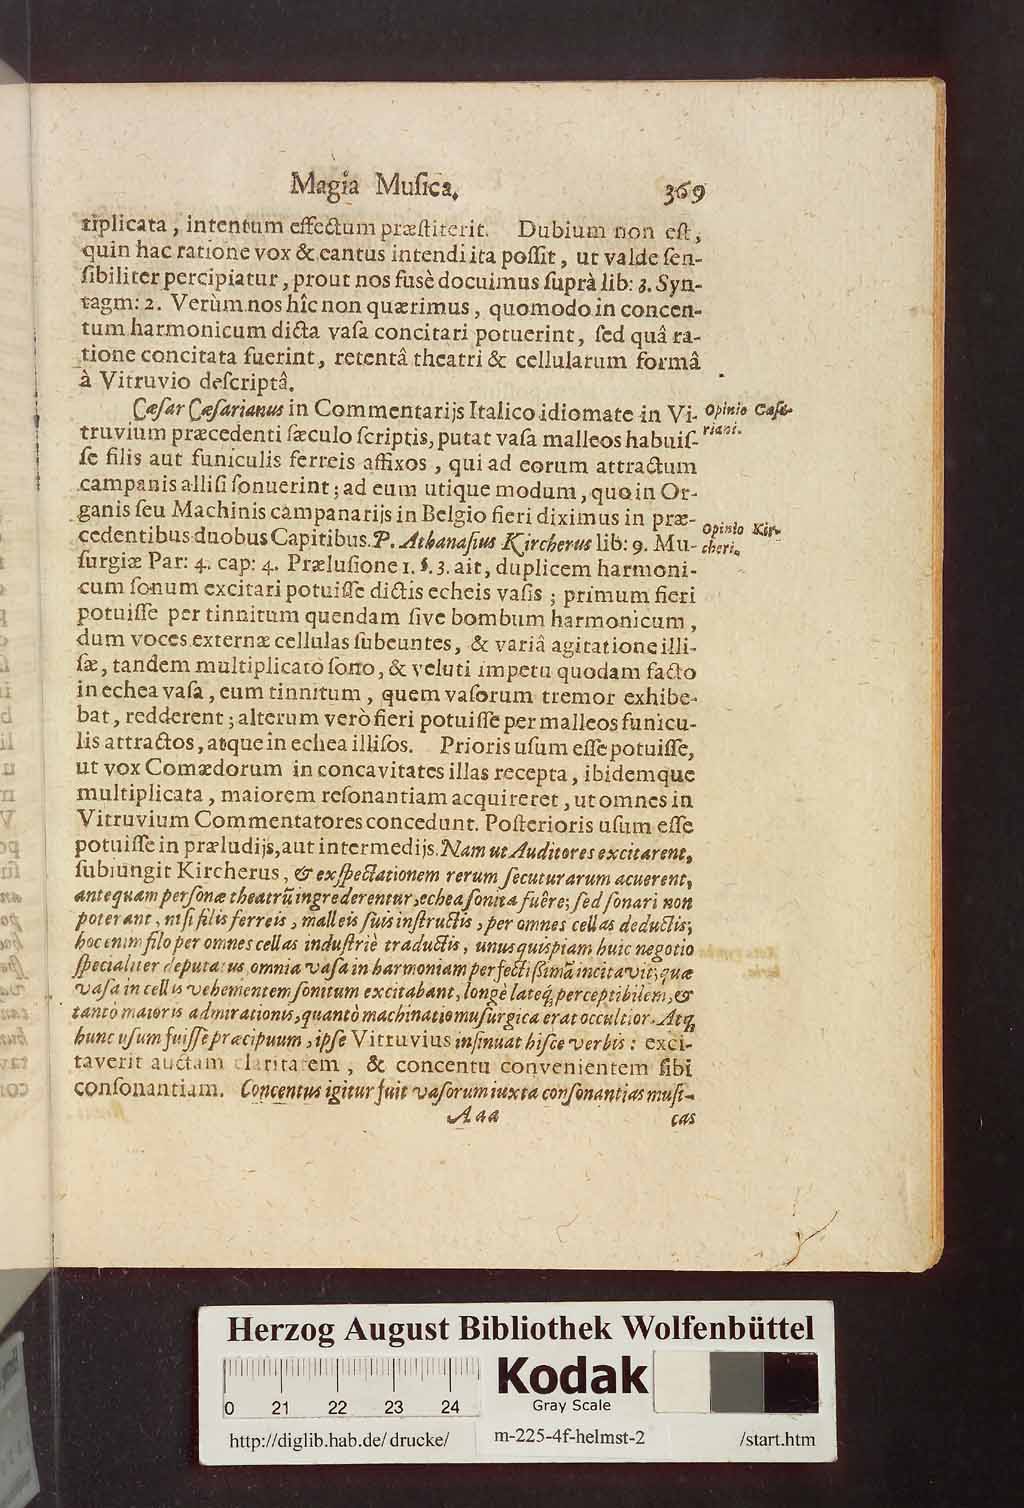 Magia Muſica. 369
tiplicata, intentum effectum præſtiterit. Dubium non eſt,
quin hac ratione vox & cantus intendi ita poſſit, ut valde ſen-
ſibiliter percipiatur, prout nos fusè docuimus ſuprà lib: 3. Syn-
tagm: 2. Verùm nos hîc non quærimus, quomodo in concen-
tum harmonicum dicta vaſa concitari potuerint, ſed quâ ra-
tione concitata fuerint, retentâ theatri & cellularum formâ
à Vitruvio deſcriptâ.
Cæſar Cæſarianus in Commentarijs Italico idiomate in Vi-
Opinio Cæſa-
riani.
truvium præcedenti ſæculo ſcriptis, putat vaſa malleos habuiſ-
ſe filis aut funiculis ferreis affixos, qui ad eorum attractum
campanis alliſi ſonuerint; ad eum utique modum, quo in Or-
ganis ſeu Machinis campanarijs in Belgio fieri diximus in præ-
Opinio Kir-
cheri.
cedentibus duobus Capitibus. P. Athanaſius Kircherus lib: 9. Mu-
ſurgiæ Par: 4. cap: 4. Præluſione 1. §. 3. ait, duplicem harmoni-
cum ſonum excitari potuiſſe dictis echeis vaſis; primum fieri
potuiſſe per tinnitum quendam ſive bombum harmonicum,
dum voces externæ cellulas ſubeuntes, & variâ agitatione illi-
ſæ, tandem multiplicato ſono, & veluti impetu quodam facto
in echea vaſa, eum tinnitum, quem vaſorum tremor exhibe-
bat, redderent; alterum verò fieri potuiſſe per malleos funicu-
lis attractos, atque in echea illiſos. Prioris uſum eſſe potuiſſe,
ut vox Comædorum in concavitates illas recepta, ibidemque
multiplicata, maiorem reſonantiam acquireret, ut omnes in
Vitruvium Commentatores concedunt. Poſterioris uſum eſſe
potuiſſe in præludijs, aut intermedijs. Nam ut Auditores excitarent,
ſubiungit Kircherus, & exſpectationem rerum ſecuturarum acuerent,
antequam perſonæ theatrũ ingrederentur, echea ſonita fuêre; ſed ſonari non
poterant, niſi filis ferreis, malleis ſuis inſtructis, per omnes cellas deductis;
hoc enim filo per omnes cellas induſtriè traductis, unus quiſpiam huic negotio
ſpecialiter deputatus omnia vaſa in harmoniam perfectiſſimā incitavit; quæ
vaſa in cellis vehementem ſonitum excitabant, longè lateq́; perceptibilem, &
tantò maioris admirationis, quantò machinatio muſurgica erat occultior. Atq;
hunc uſum fuiſſe præcipuum, ipſe Vitruvius inſinuat hiſce verbis: exci-
taverit auctam claritatem, & concentu convenientem ſibi
conſonantiam. Concentus igitur fuit vaſorum iuxta conſonantias muſi-
Aaa cas
Herzog August Bibliothek Wolfenbüttel
0 21 22 23 24
Kodak
Gray Scale
http://diglib.hab.de/drucke/ m-225-4f-helmst-2 /start.htm